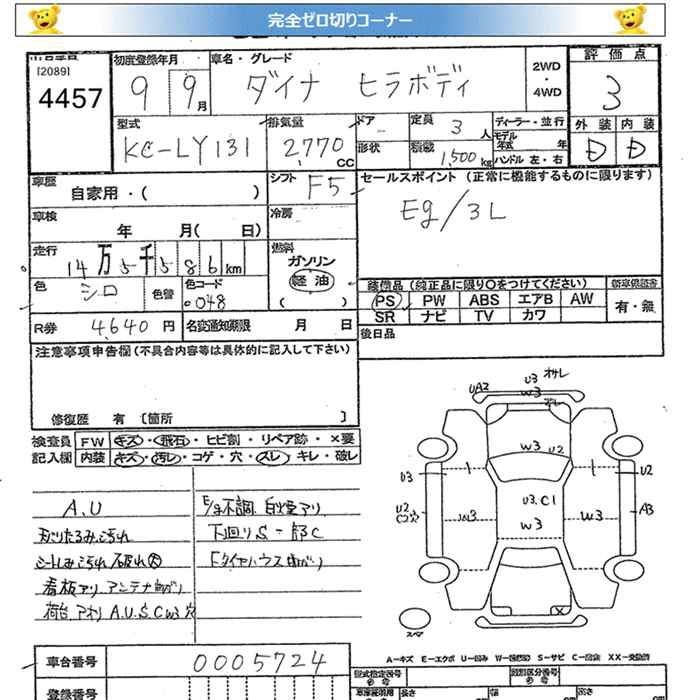 完全ゼロ切りコーナー
[2089]
4457
初度登録年月
9 9月
車名・グレード
ダイナ ヒラボディ
2WD
・
4WD
評価点
3
外装 内装
D D
型式
KC-LY131
排気量
2,770
CC
ドア
形状
定員 3 人
積載 1,500 kg
ディーラー・並行
モデル
年式 年
ハンドル 左・右
車歴
自家用・( )
シフト F5
セールスポイント(正常に機能するものに限ります)
Eg/3L
車検
年 月( 日)
冷房
走行
14万5千586km
燃料
ガソリン
軽油
( )
色
シロ
色替
色コード
048
装備品(純正品に限り〇をつけてください)
PS PW ABS エアB AW
SR ナビ TV カワ
新車保証書
有・無
R券 4,640円
名変通知期限 月 日
後日品
注意事項申告欄(不具合内容等は具体的に記入して下さい)
修復歴 有 〔箇所 〕
検査員
記入欄
FW キズ・飛石・ヒビ割・リペア跡・×要
内装 キズ・汚レ・コゲ・穴・スレ・キレ・破レ
A.U
シートしみ汚れ
看板アリ アンテナ曲がり
荷台 アオリ A.U.S.C W3 穴
下回りS一部C
Fタイヤハウス曲がり
UA2
U3
W3
W3 U2
U3
U2
U2
A3
W3
U3.C1
W3
W3
X
スペア
A-キズ E-エクボ U-凹み W-補修跡 S-サビ C-腐食 XX-交換済
車台番号 0005724
登録番号
型式指定番号
類別区分番号
長さ
幅
高さ